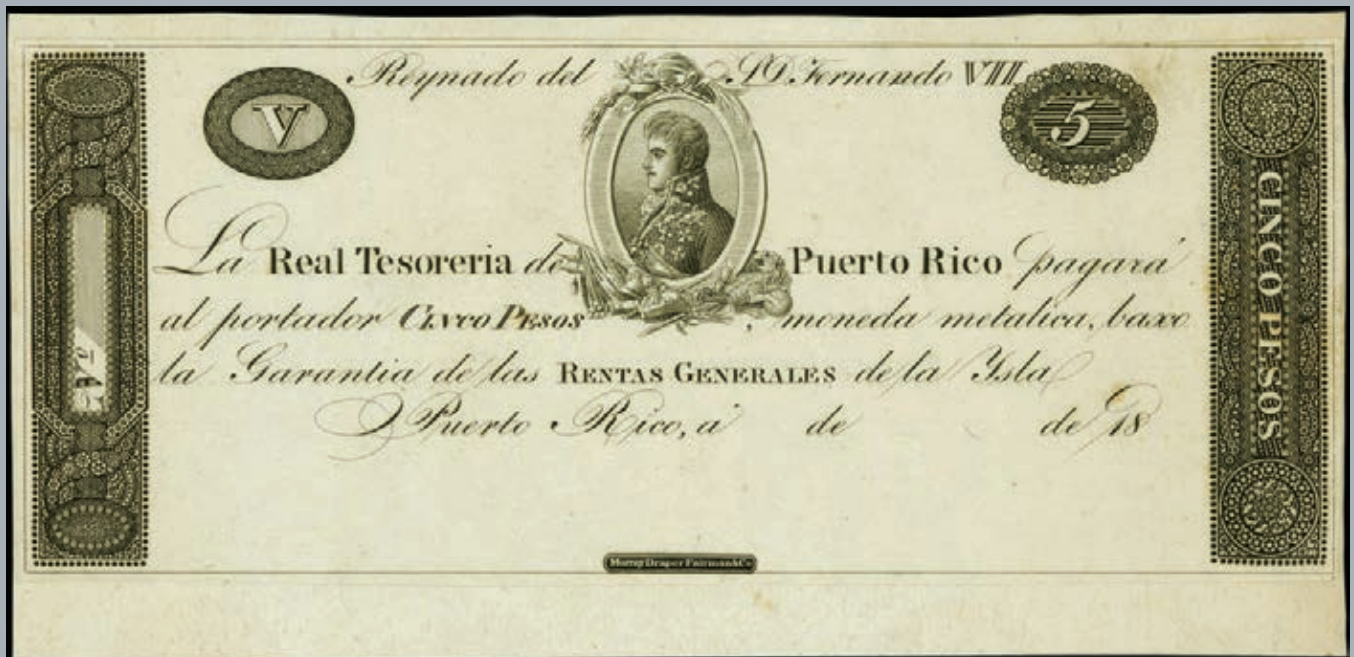 Reynado del S.D. Fernando VII
V
5
La Real Tesoreria de Puerto Rico pagará
al portador Cinco Pesos, moneda metalica, baxo
la Garantia de las RENTAS GENERALES de la Ysla
Puerto Rico, á de de 18
CINCO PESOS
Murray Draper Fairman & Co